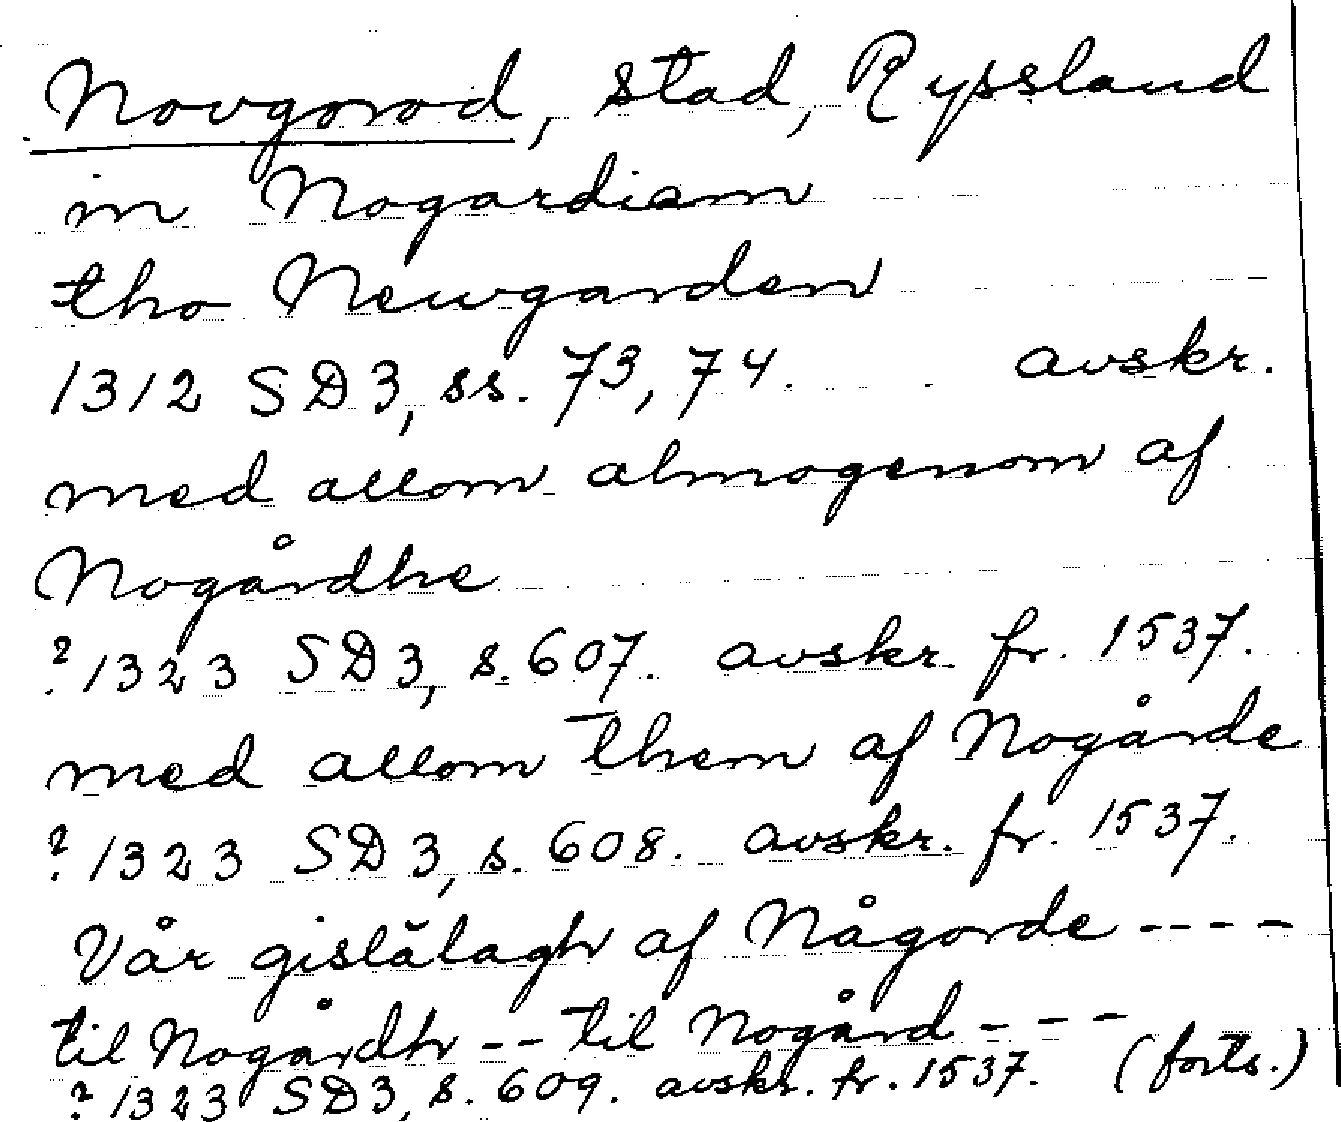 Novgorod, stad, Ryssland
in Nogardiam
tho Newgarden
1312 SD3, ss. 73, 74. avskr.
med allom almogenom af
Nogårdhe
?1323 SD3, s. 607. avskr. fr. 1537.
med allom them af Nogårde
?1323 SD3, s. 608. avskr. fr. 1537.
Vår gislălagh af Någorde ----
til Nogårdh -- til Nogård ---
?1323 SD3, s. 609. avskr. fr. 1537. (forts.)